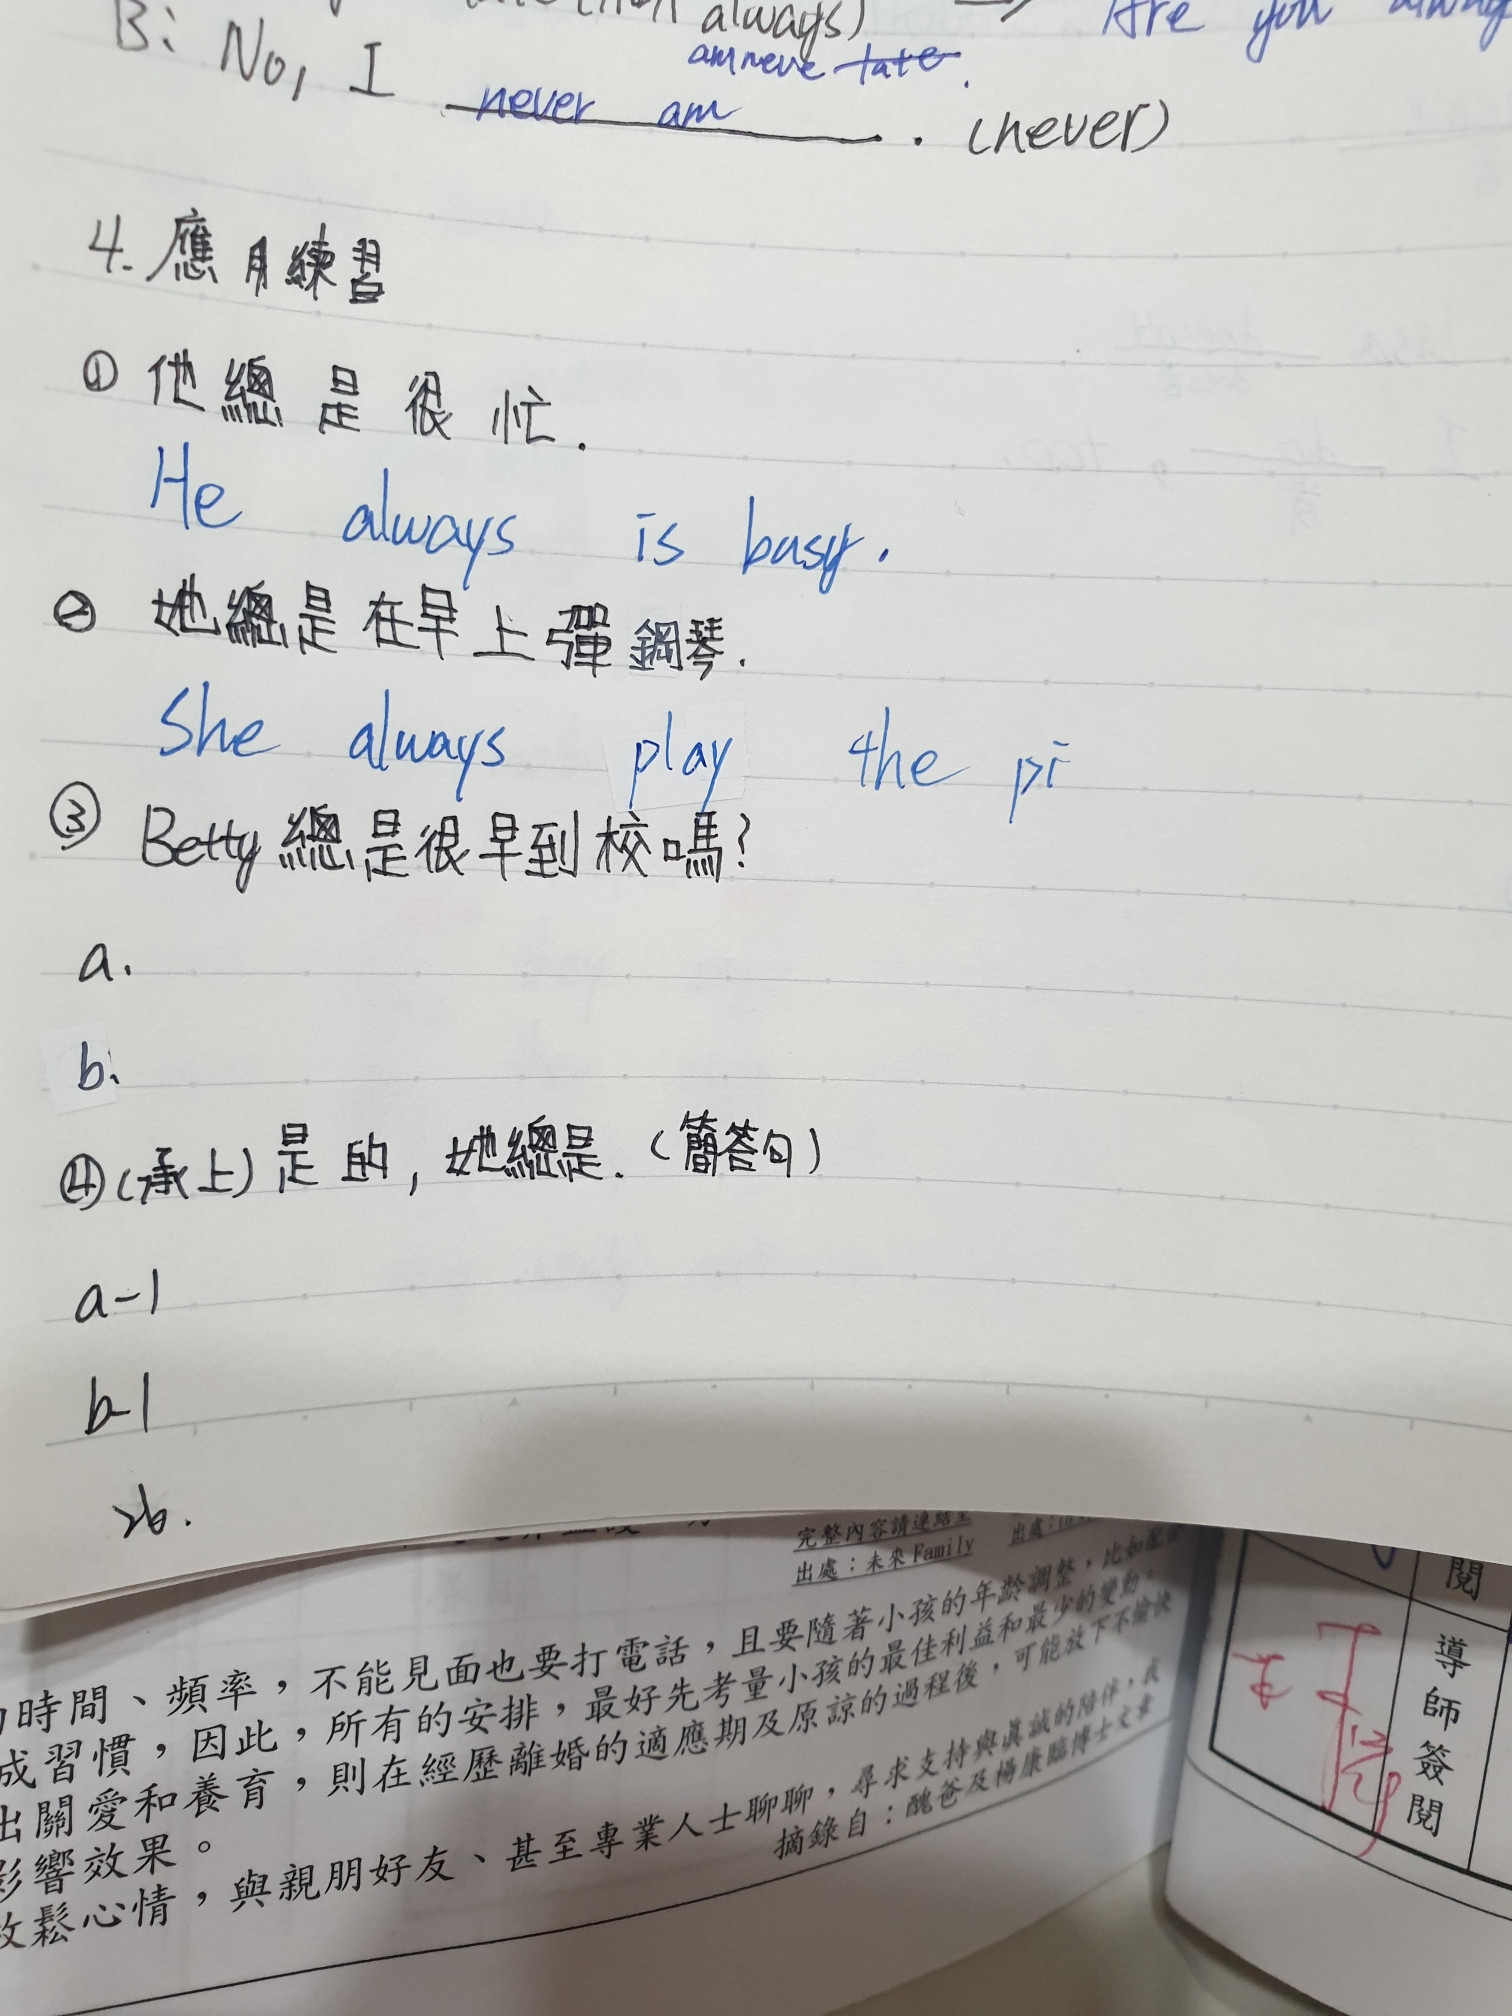 always) Are you
am neve late.
B: No, I never am . (never)
4. 應用練習
① 他總是很忙.
He always is busy.
② 她總是在早上彈鋼琴.
She always play the pi
③ Betty總是很早到校嗎?
a.
b.
④(承上)是的,她總是.(簡答句)
a-1
b-1
完整內容請連結至
出處:未來Family
時間、頻率,不能見面也要打電話,且要隨著小孩的年齡調整,比如
成習慣,因此,所有的安排,最好先考量小孩的最佳利益和最少的變動。
出關愛和養育,則在經歷離婚的適應期及原諒的過程後,可能放下不愉快
影響效果。
放鬆心情,與親朋好友、甚至專業人士聊聊,尋求支持與真誠的陪伴,
摘錄自:醜爸及楊康臨博士文章
閱
導師簽閱